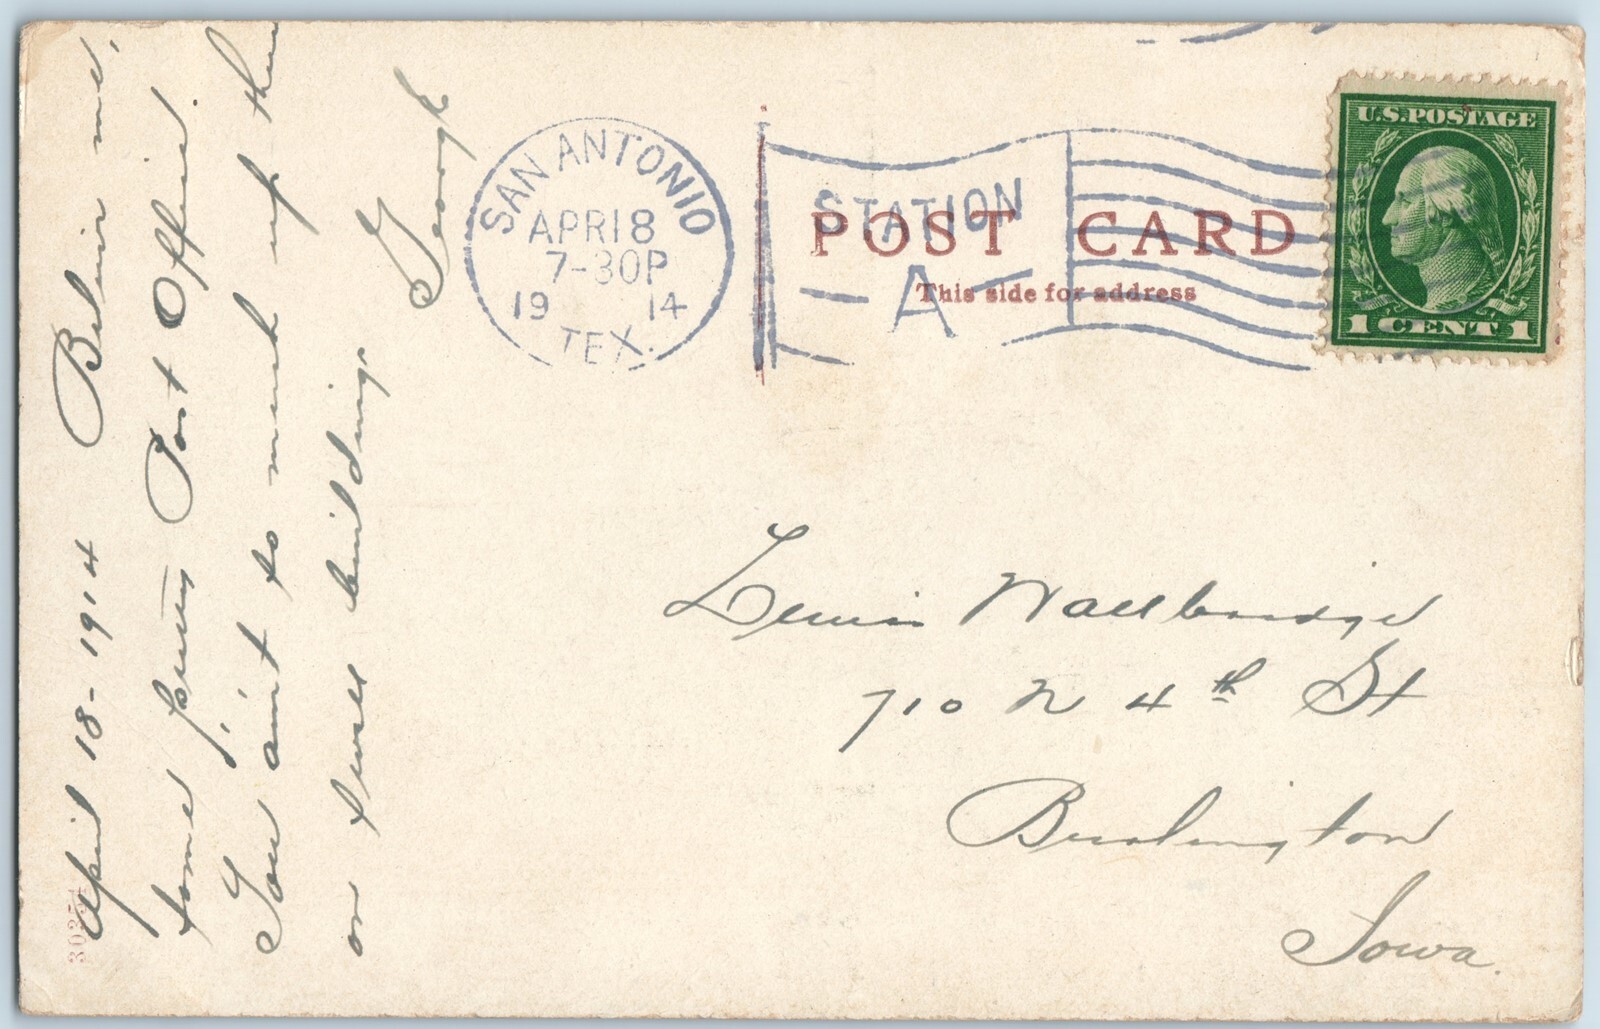 April 18-1914 Believe me,
some Post Office.
You ain't so much up there
on buildings.
George
SAN ANTONIO
APR 18
7-30P
1914
TEX.
STATION
A
POST CARD
This side for address
U.S. POSTAGE
1 CENT 1
Lewis Wallbridge
710 N 4th St
Burlington
Iowa.